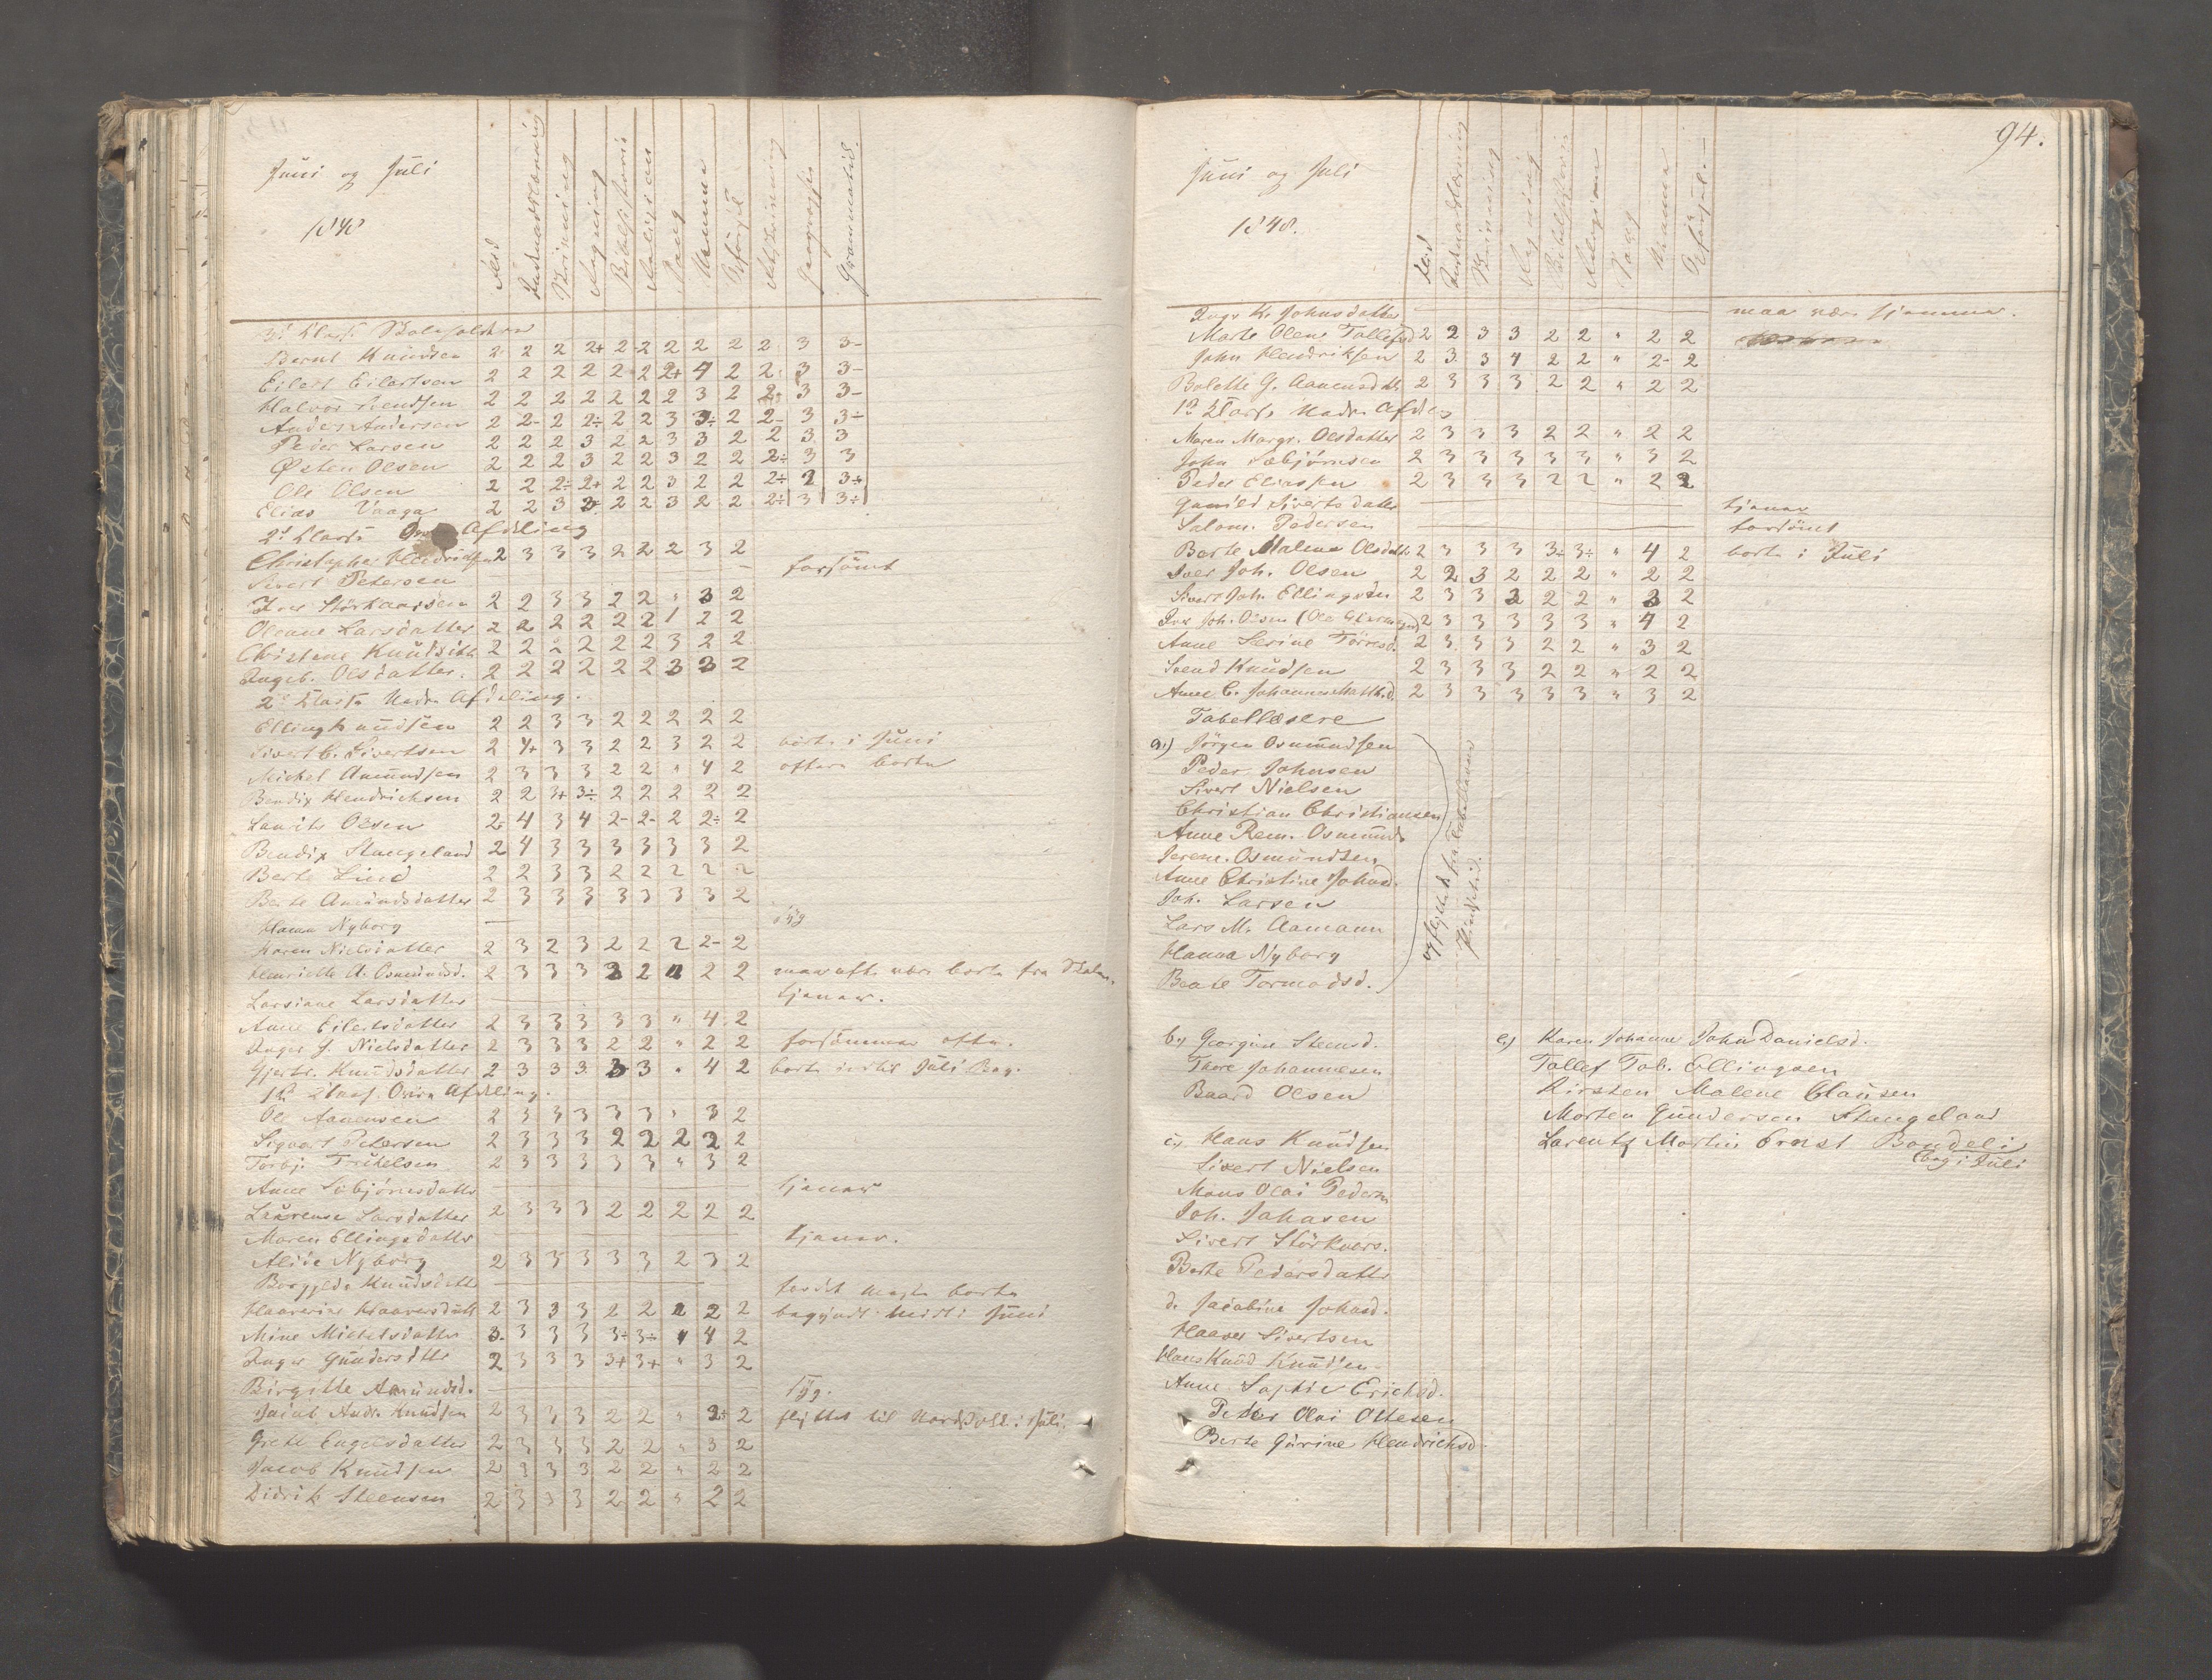 Juni og Juli
1848
Flid
Indenadslæsning
Skrivning
Regning
Bibelhistorie
Religion
Sang
Opførsel
Geographie
Grammatik.
3d Klasse
Bernt Knudsen 2 2 2 2+ 2 2 2 2 2 2 3 3-
Eilert Eilertsen 2 2 2 2 2 2 2+ 4 2 2 3 3-
Halvor 2 2 2 2 2 2 2 3 2 2 3 3-
Anders Andersen 2 2- 2 2÷ 2 2 3 3÷ 2 2- 3 3÷
Peder Larsen 2 2 2 3 2 2 3 3 2 2 3 3
Østen Olsen 2 2 2 3 2 2 3 2 2 2÷ 3 3
Ole Olsen 2 2 2÷ 2+ 2 2 3 2 2 2÷ 2 3+
Elias Vaaga 2 2 3 3 2 2 3 2 2 2÷ 3 3÷
2d Klasse Afdeling
Christopher Hendriksen 2 3 3 3 2 2 2 3 2
Sivert Petersen forsömt
Iver Störkaarsen 2 2 3 3 2 2 " 3 2
Olene Larsdatter 2 2 2 2 2 2 1 2 2
Christine Knudsdtt 2 2 2 2 2 2 3 2 2
Ingeb. Olsdatter. 2 2 2 2 2 2 3 3 2
2d Klasse Nedre Afdeling.
Elling Knudsen 2 2 3 3 2 2 2 2 2
Sivert C. Sivertsen 2 4+ 3 3 2 2 3 2 2 borte i Juni
Michel Amundsen 2 3 3 3 2 2 " 4 2 oftere borte
Bendix Hendrichsen 2 2 3+ 3÷ 2 2 2 2 2
Laurits Olsen 2÷ 4 3 4 2- 2- 2 2÷ 2
Bendix Stangeland 2 4 3 3 3 3 3 3 2
Berte Lind 2 2 3 3 2 2 2 2 2
Berte Amundsdatter 2 3 3 3 3 3 3 3 2
Hanna Nyborg syg
Karen Nielsdatter 2 3 2 3 2 2 2 2- 2
Henriette A. Osmundsd. 2 3 3 3 3 2 " 2 2 maa ofte være borte fra Skolen.
Larsiane Larsdatter tjener.
Anne Eilertsdatter 2 3 3 3 3 3 " 4 2
Inger J. Nielsdatter 2 3 3 3 2 2 " 2 2 forsömmer ofte.
Gjertr. Knudsdatter 2 3 3 3 3 3 " 4 2 borte indtil Juli Beg.
1st Klasse Övre Afdeling.
Ol. Aanensen 2 3 3 3 3 3 " 3 2
Siguart Petersen 2 3 3 3 2 2 2 2 2
Torbj. Troelsen 2 3 3 3 3 3 " 3 2
Anne Sebjörnsdatter tjener
Laurense Larsdatter 2 3 3 3 2 2 2 2 2
Maren Ellingsdatter tjener.
Alide Nyborg 2 3 3 3 3 3 2 3 2
Borgilde Knudsdatter for det meste borte
Haaverine Haaversdatt 2 3 3 3 2 2 2 2 2 begyndt midt i Juni
Mine Michelsdatter 3- 3 3 3 3÷ 3÷ " 4 2
Inger Gundersdtt 2 3 3 3 3+ 3+ " 3 2
Birgitte Amundsd. syg.
Jacob Andr. Knudsen 2 3 3 3 2 2 " 2÷ 2 flyttet til i Juli.
Grete Engelsdatter 2 3 3 3 2 2 " 3 2
Jacob Knudsen 2 3 3 3 2 2 " 2 2
Didrik Steensen 2 3 3 3 2 2 " 2 2
94.
Juni og Juli
1848.
Flid
Indenadslæsning
Skrivning
Regning
Bibelhistorie
Religion
Sang
Opförsel.
Inger K. Johnsdatter maa være hjemme.
Marte Olene Tollefsd 2 2 3 3 2 2 " 2 2
John Hendriksen 2 3 3 4 2 2 " 2- 2
Bolette G. Aanensdtt. 2 3 3 3 2 2 " 2 2
1st Klasse Nedre Afdeling
Maren Margr. Olsdatter 2 3 3 3 2 2 " 2 2
John Sæbjörnsen 2 3 3 3 3 3 " 3 2
Peder Eliassen 2 3 3 3 2 2 " 2 2
Gunild Sivertsdatter tjener
Salom. Pedersen forsömt
Berte Malene Olsdatt. 2 3 3 3 3÷ 3÷ " 4 2 borte i Juli
Iver Joh. Olsen 2 2 3 2 2 2 " 2 2
Sivert Joh. Ellingsen 2 3 3 3 2 2 " 3 2
Joh. Olsen 2 3 3 3 3 3 " 4 2
Anne Serine Törresd. 2 3 3 3 2 2 " 3 2
Svend Knudsen 2 3 3 3 2 2 " 2 2
Anne C. Johannes 2 3 3 3 3 3 " 3 2
Tabellæsere
a.) Jörgen Osmundsen
Peder Johnsen
Sivert Nielsen
Christian Christiansen
Anne Rem. Osmunds
Serene Osmundsen
Anne Christine Johnsd.
Joh. Larsen
Lars M. Aamann
Hanna Nyborg
Beate Tormodsd.
opflyttet fra Tabellæserne
b.) Georgine Steensd.
Thore Johannesen
Baard Olsen
c. Hans Knudsen
Sivert Nielsen
Mons Olai Pedersen
Joh. Johnsen
Sivert Störkors.
Berte Pedersdatter
d. Jacobine Johnsd.
Haaver Sivertsen
Hans Knud Knudsen
Anne Sophie Erichsd.
Peder Olai Ottesen
Berte Gurine Hendrichsd.
e.) Karen Johanne John Danielsd.
Tollef Tob. Ellingsen
Kirsten Malene Clausen
Morten Gundersen Stangeland
Larentz Martin Ernst Bandeli
beg. i Juli